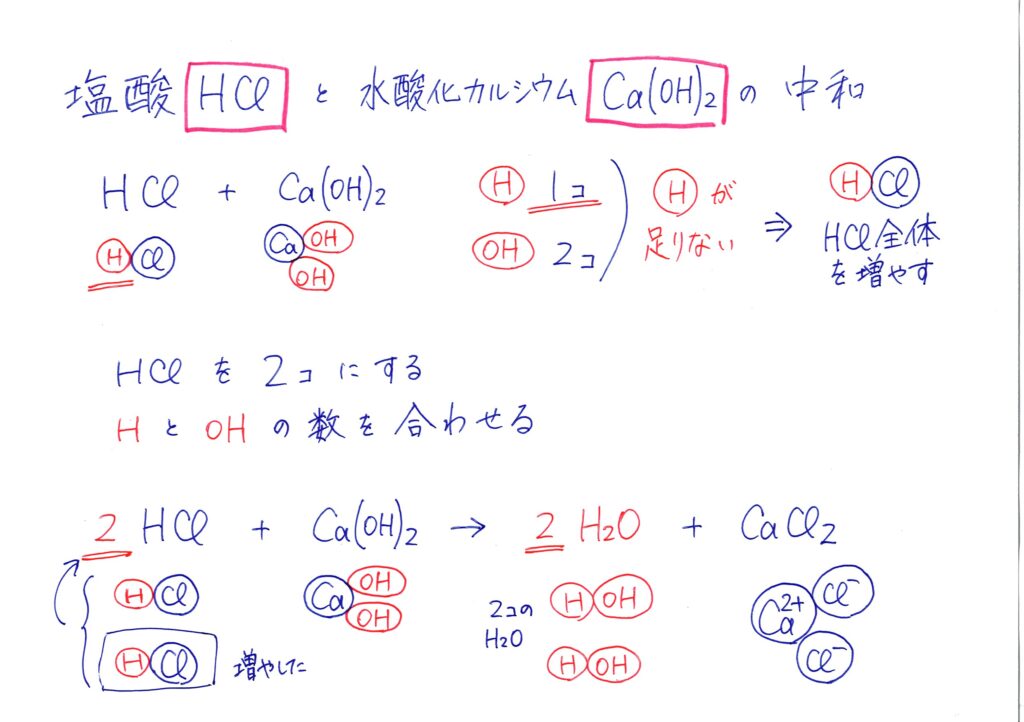 塩酸 HCl と 水酸化カルシウム Ca(OH)₂ の 中和
HCl + Ca(OH)₂
H Cl Ca OH OH
H 1コ
OH 2コ
H が
足りない
⇒
H Cl
HCl全体
を増やす
HCl を 2コ にする
H と OH の 数を 合わせる
2 HCl + Ca(OH)₂ → 2 H₂O + CaCl₂
H Cl
H Cl 増やした
Ca OH OH
2コの
H₂O
H OH
H OH
Ca²⁺ Cl⁻ Cl⁻